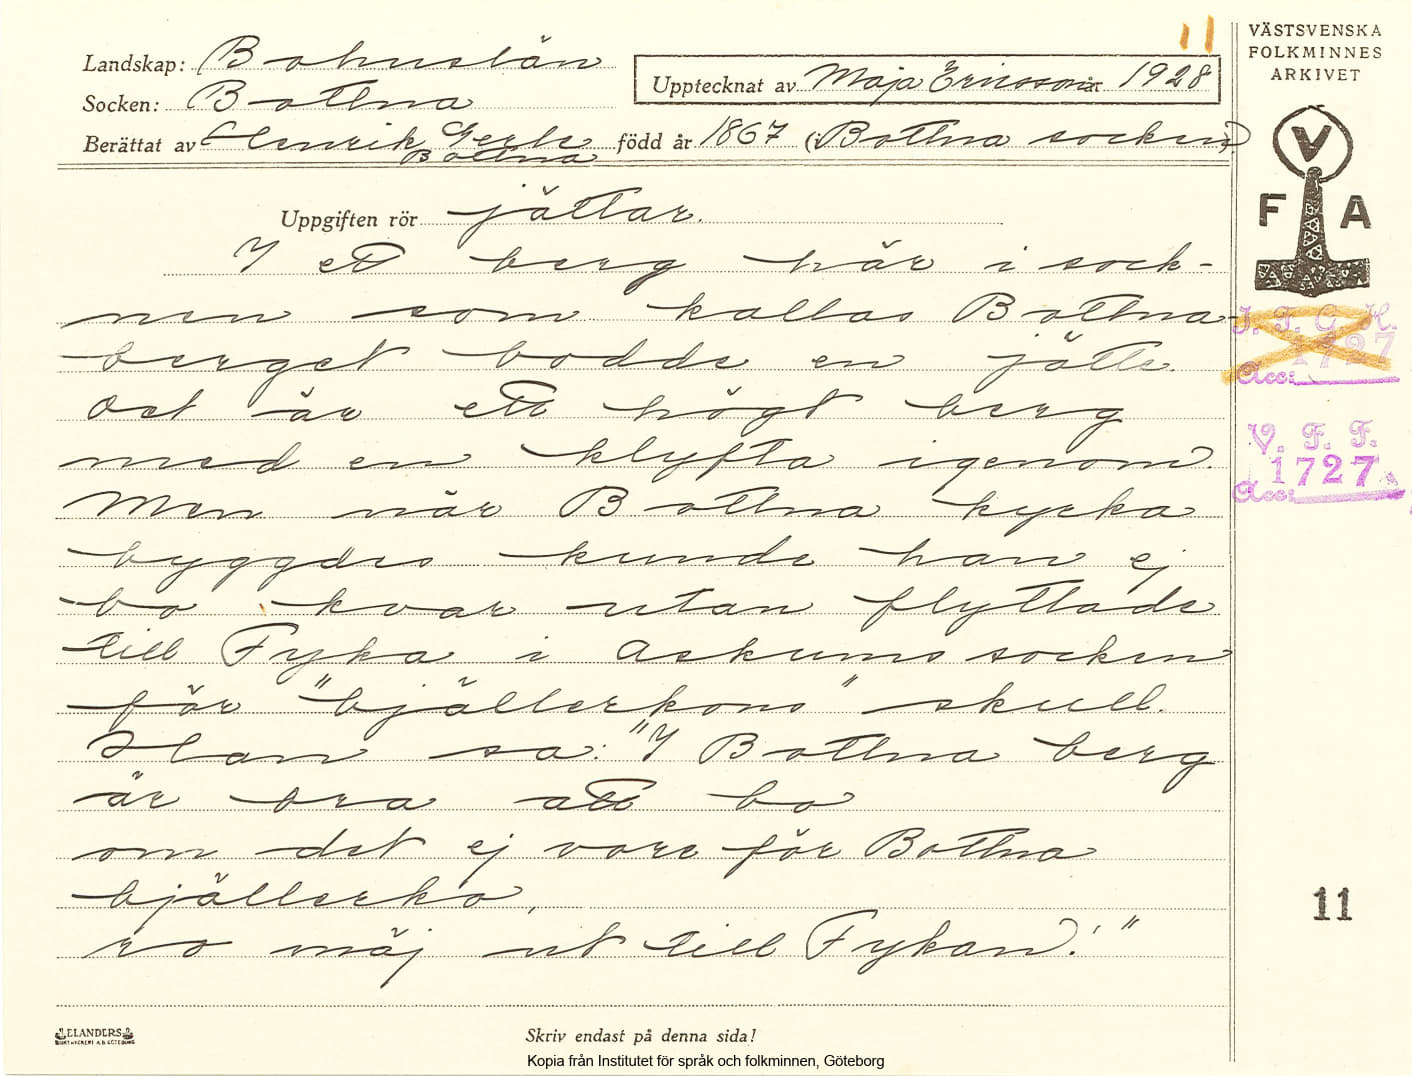 11
VÄSTSVENSKA
FOLKMINNES
ARKIVET
Landskap: Bohuslän
Upptecknat av Maja Ericsson år 1928
Socken: Bottna
Berättat av Henrik Gerle född år 1867 (i Bottna socken)
Bottna
V
F A
Uppgiften rör jättar.
I ett berg här i sock-
nen som kallas Bottna-
berget bodde en jätte.
Det är ett högt berg
med en klyfta igenom.
Men när Bottna kyrka
byggdes kunde han ej
bo kvar utan flyttade
till Fykan i Askums socken
för "bjällerkons" skull.
Han sa: "I Bottna berg
är bra att bo
om det ej vore för Bottna
bjällerko,
ro mäj ut till Fykan!"
I. F. G. H.
1727
Acc:
V. F. F.
1727
Acc:
11
ELANDERS
BOKTRYCKERI A.B. GÖTEBORG
Skriv endast på denna sida!
Kopia från Institutet för språk och folkminnen, Göteborg